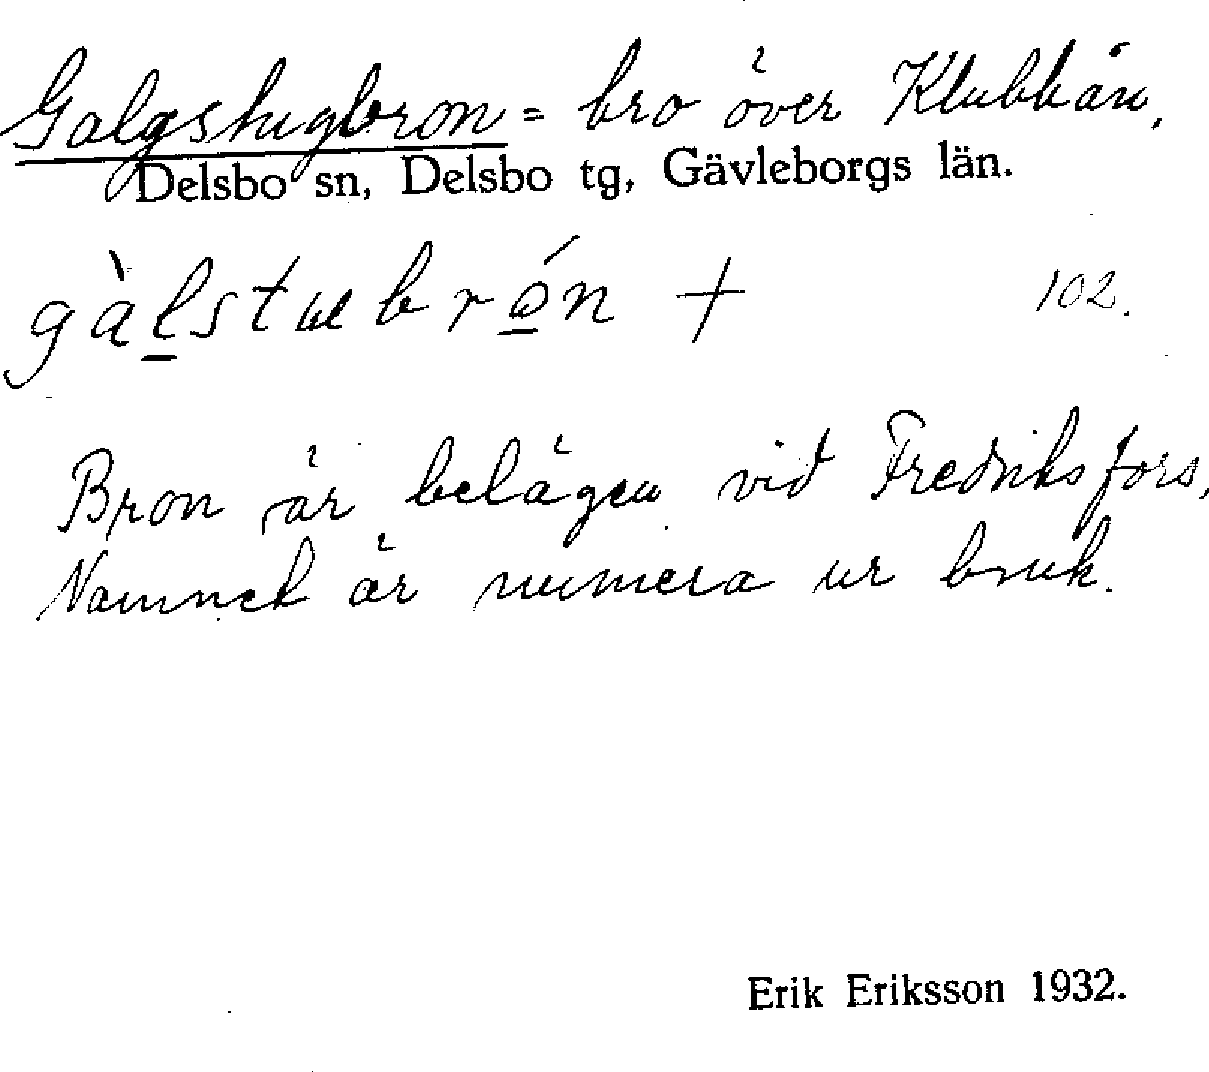 Galgstugbron = bro över Klubbån,
Delsbo sn, Delsbo tg, Gävleborgs län.
gàlstubrón + 102.
Bron är belägen vid Fredriksfors,
Namnet är numera ur bruk.
Erik Eriksson 1932.